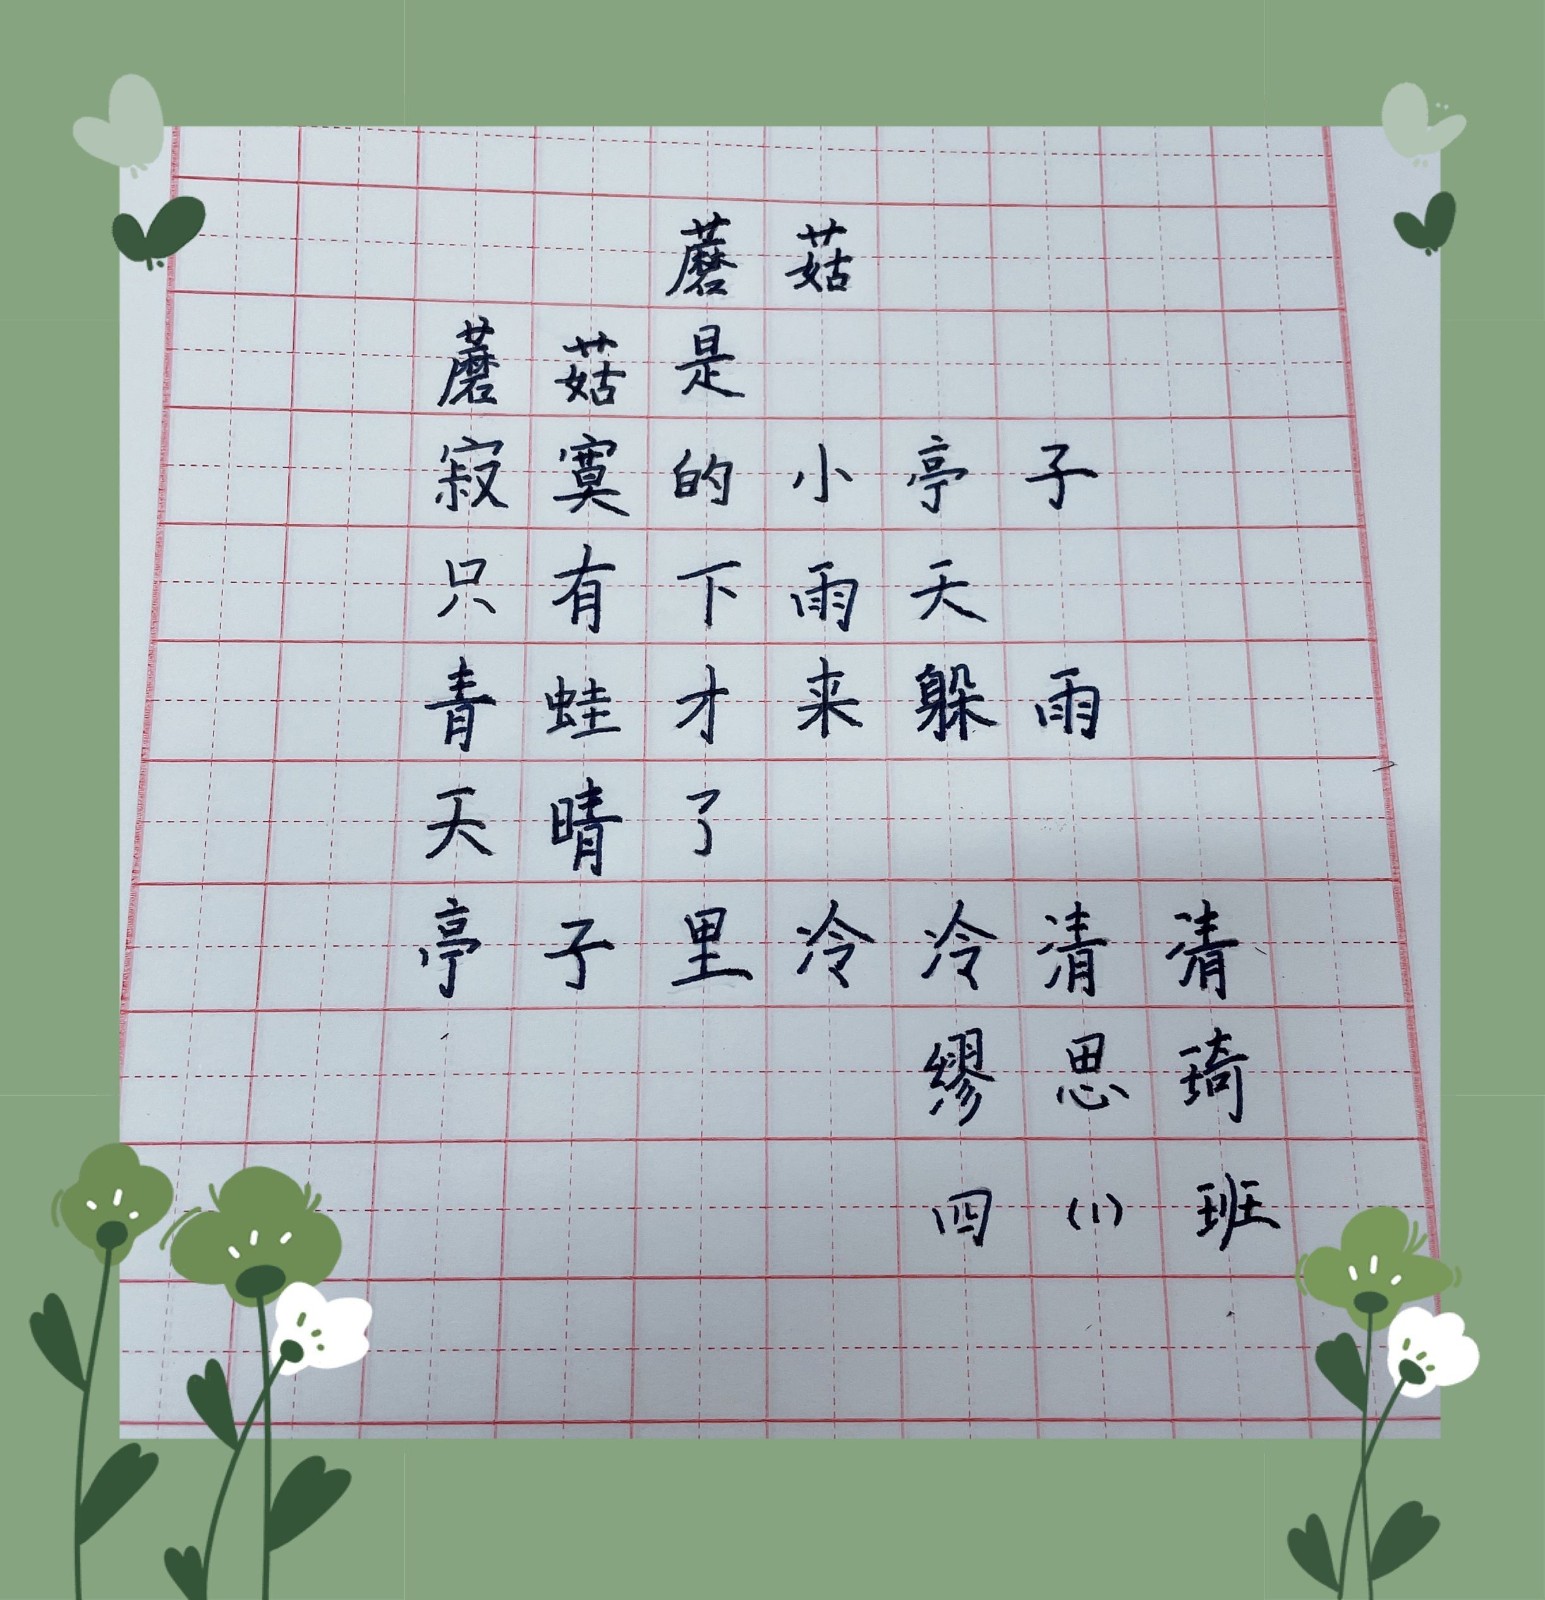 蘑菇
蘑菇是
寂寞的小亭子
只有下雨天
青蛙才来躲雨
天晴了
亭子里冷冷清清
缪思琦
四(1)班